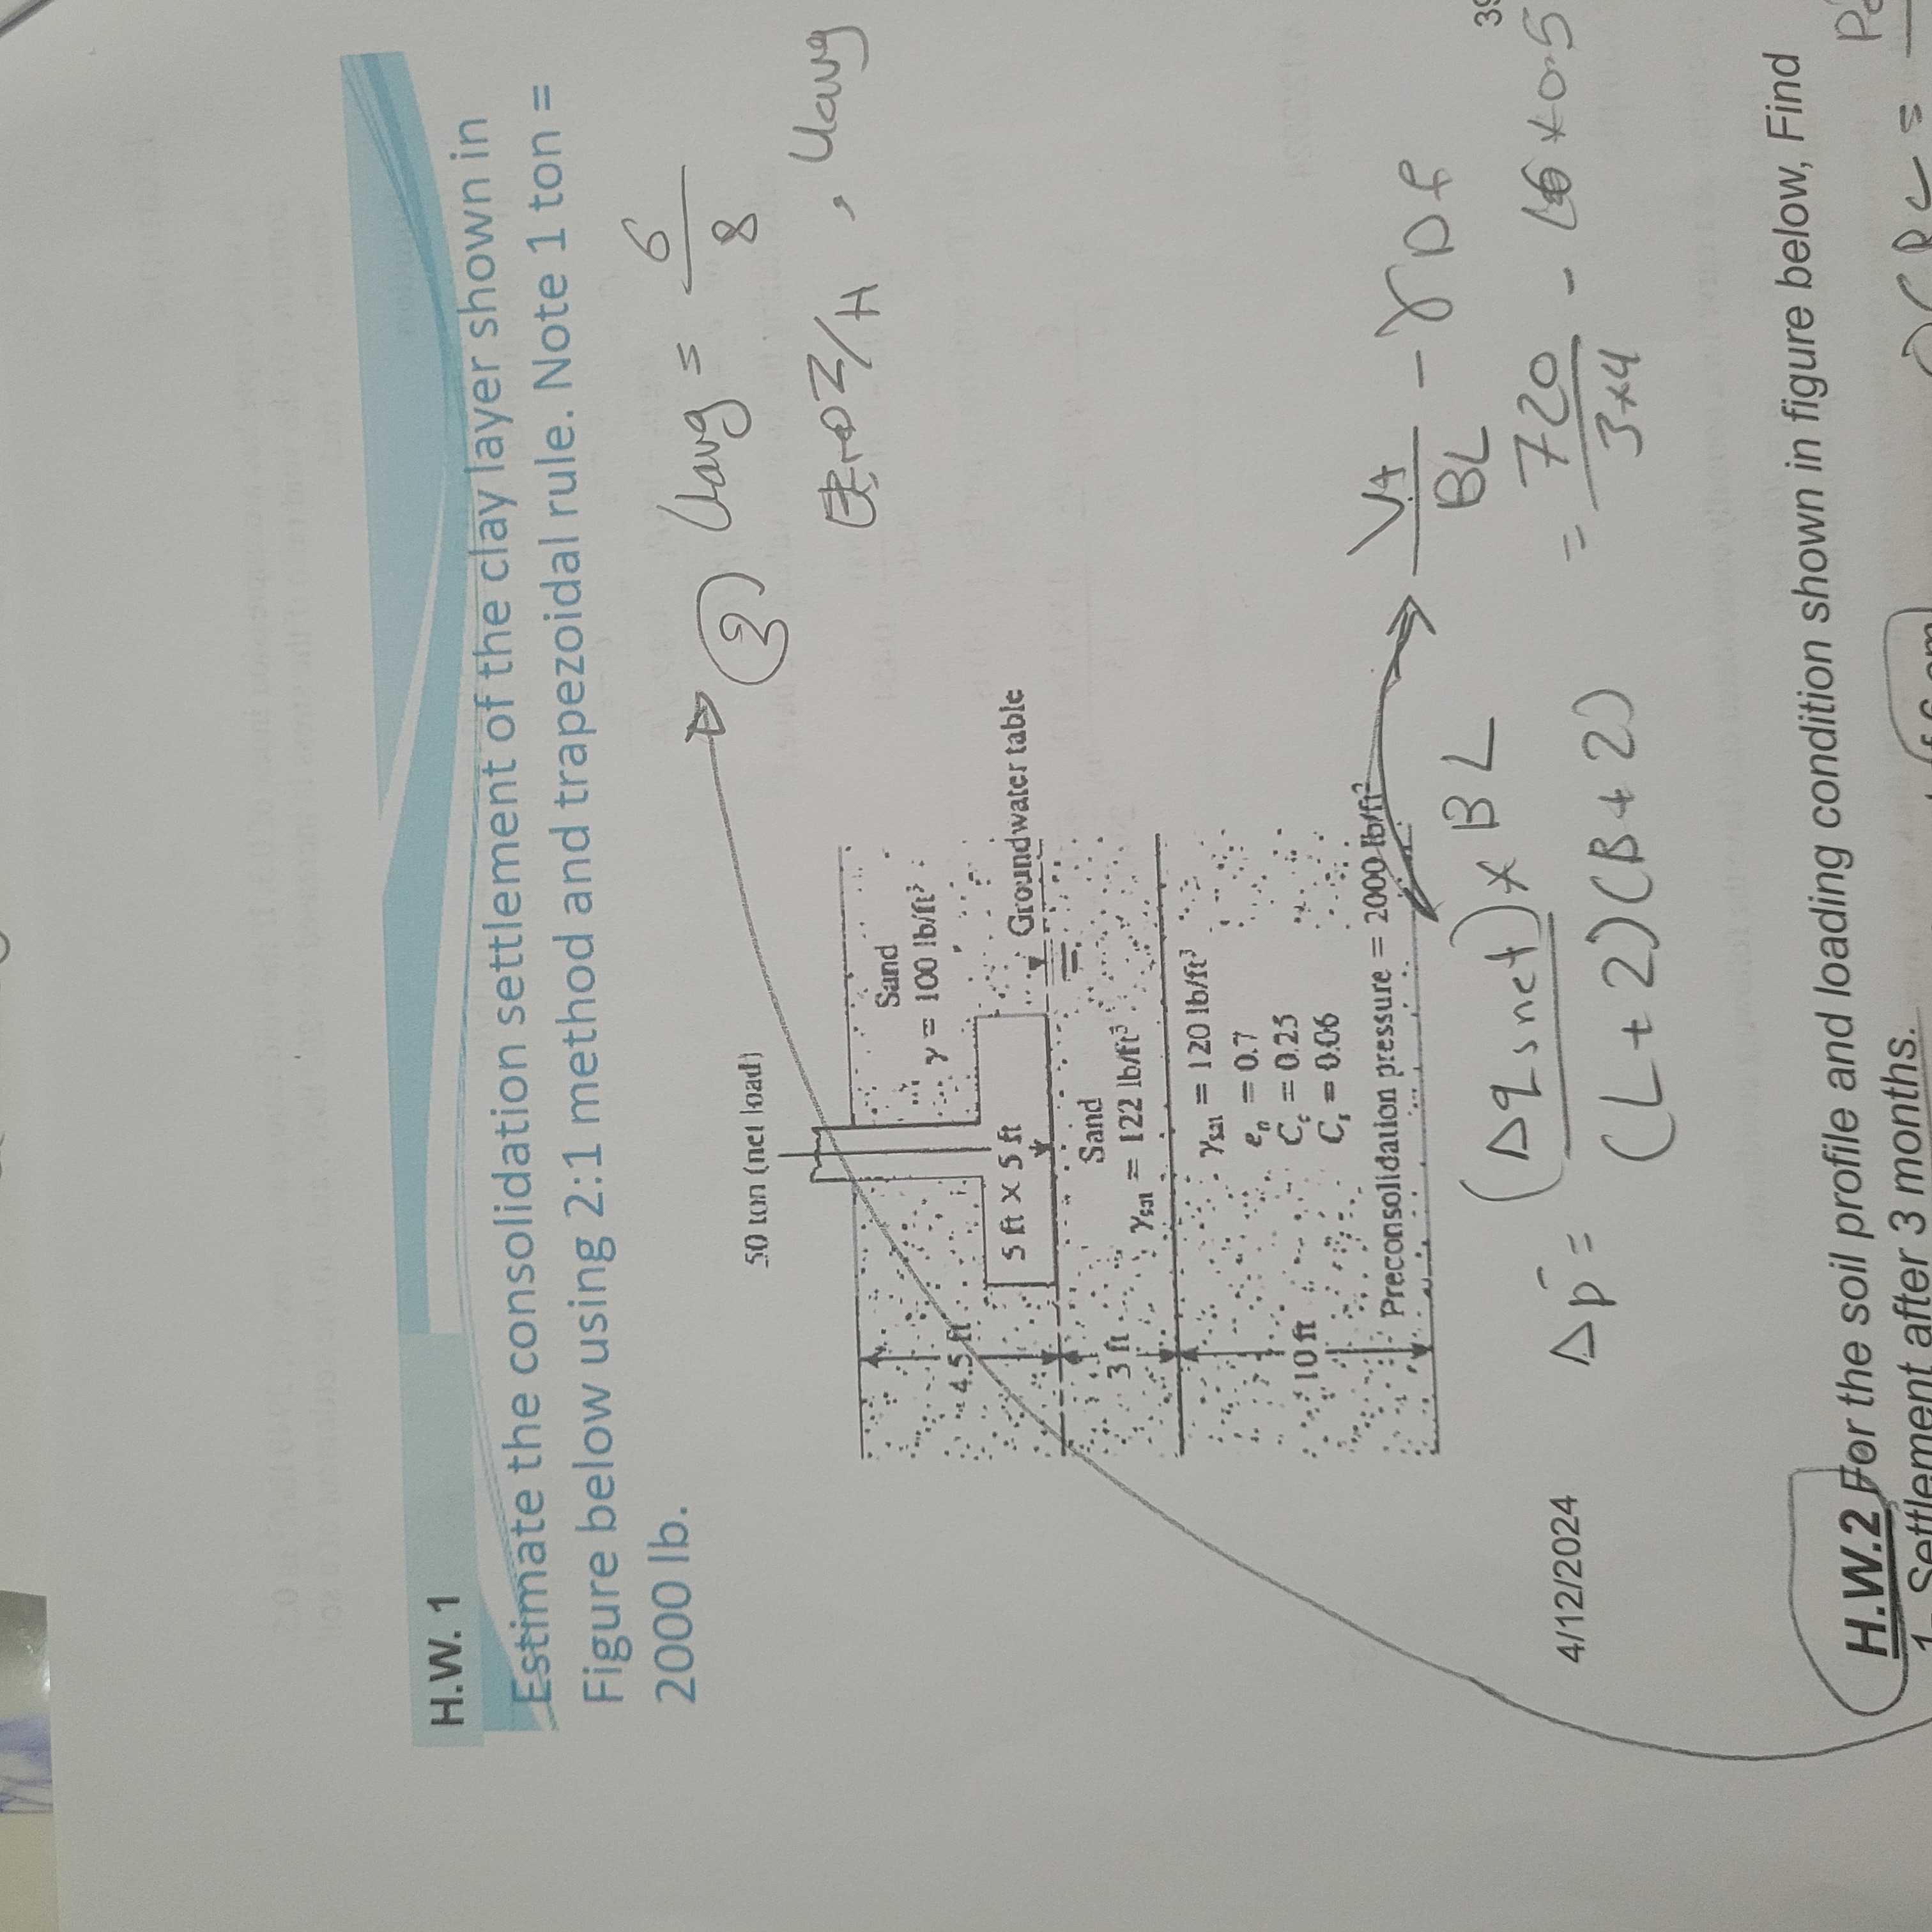 H.W. 1
Estimate the consolidation settlement of the clay layer shown in
Figure below using 2:1 method and trapezoidal rule. Note 1 ton =
2000 lb.
③ Uavg = 6/8
Z/H , Uavg
50 ton (net load)
Sand
γ = 100 lb/ft³
4.5 ft
5 ft X 5 ft
Groundwater table
Sand
3 ft
γsat = 122 lb/ft³
γsat = 120 lb/ft³
= 0.7
Cc = 0.25
10 ft
Cs = 0.06
Preconsolidation pressure = 2000 lb/ft²
/BL - γDf
Δp = (Δqsnet) x BL
(L + Z)(B + Z)
= 720/3x4 - 16 x 0.5
4/12/2024
39
H.W.2 For the soil profile and loading condition shown in figure below, Find
1 Settlement after 3 months.